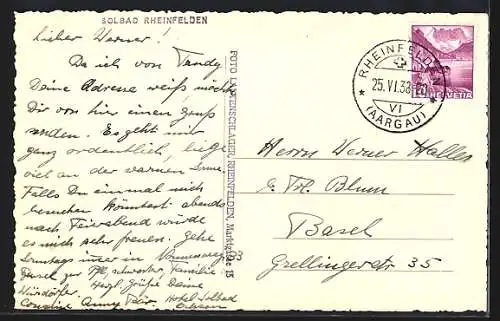 SOLBAD RHEINFELDEN
Lieber Werner!
Da ich von Trudy
Deine Adresse weiß möchte
Dir von hier einen Gruß
senden. Es geht mir
ganz ordentlich, liege
viel an der warmen Sonne.
Falls Du einmal mich
besuchen könntest abends
nach Feierabend würde
es mich sehr freuen. Gehe
Sonntags immer in
Basel zur Familie
Herzl. Grüße Deine
Cousine Anny Hotel Solbad
FOTO LAUENSCHLAGER, RHEINFELDEN, Marktgasse 15
RHEINFELDEN
25.VI.38-20
VI
(AARGAU)
HELVETIA
Herrn Werner Haller
Blum
Basel
Grellingerstr 35